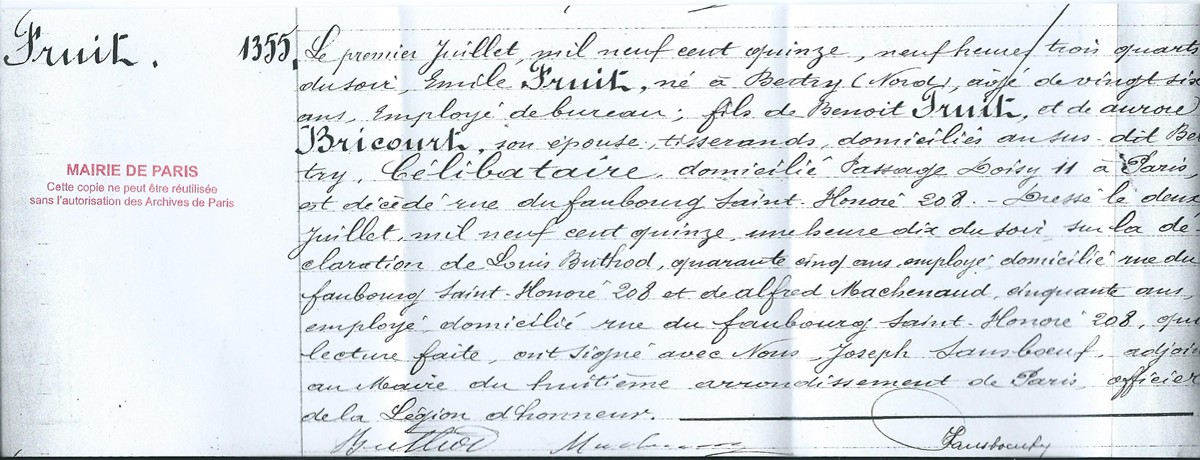 Fruit.
1355.
MAIRIE DE PARIS
Cette copie ne peut être réutilisée
sans l'autorisation des Archives de Paris
Le premier Juillet, mil neuf cent quinze, neuf heures trois quarts
du soir, Emile Fruit, né à Bertry (Nord), âgé de vingt six
ans, Employé de bureau; fils de Benoit Fruit, et de aurore
Bricourt, son épouse, tisserands, domiciliés au sus-dit Ber
try, Célibataire, domicilié Passage Loisy 11 à Paris
est décédé rue du faubourg Saint-Honoré 208. - Dressé le deux
Juillet, mil neuf cent quinze, une heure dix du soir, sur la dé-
claration de Louis Buthod, quarante cinq ans, employé, domicilié rue du
faubourg Saint-Honoré 208 et de alfred Machenaud, cinquante ans,
employé, domicilié rue du faubourg Saint-Honoré 208, qui
lecture faite, ont signé avec Nous, Joseph Sansboeuf, adjoin
au Maire du huitième arrondissement de Paris, officier
de la Légion d'honneur.
Buthod
Sansboeuf